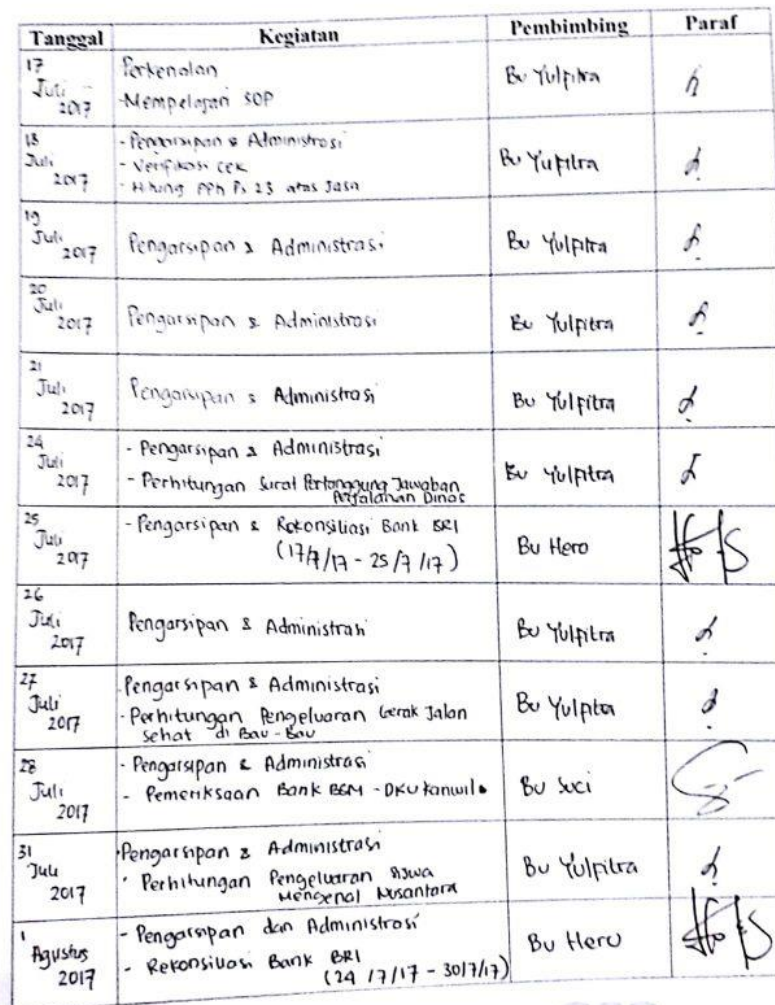 Tanggal Kegiatan Pembimbing Paraf
17 Juli 2017 Perkenalan Bu Yulfitra
- Mempelajari SOP
18 Juli 2017 - Pengarsipan & Administrasi Bu Yulfitra
- Verifikasi cek
- Hitung PPh Ps 23 atas Jasa
19 Juli 2017 Pengarsipan & Administrasi Bu Yulfitra
20 Juli 2017 Pengarsipan & Administrasi Bu Yulfitra
21 Juli 2017 Pengarsipan & Administrasi Bu Yulfitra
24 Juli 2017 - Pengarsipan & Administrasi Bu Yulfitra
- Perhitungan Surat Pertanggung Jawaban
Perjalanan Dinas
25 Juli 2017 - Pengarsipan & Rekonsiliasi Bank BRI Bu Hero
(17/7/17 - 25/7/17)
26 Juli 2017 Pengarsipan & Administrasi Bu Yulfitra
27 Juli 2017 - Pengarsipan & Administrasi Bu Yulfitra
- Perhitungan Pengeluaran Gerak Jalan
Sehat di Bau-Bau
28 Juli 2017 - Pengarsipan & Administrasi Bu Suci
- Pemeriksaan Bank BGM - DKU Kanwil
31 Juli 2017 - Pengarsipan & Administrasi Bu Yulfitra
- Perhitungan Pengeluaran Siswa
Mengenal Nusantara
1 Agustus 2017 - Pengarsipan dan Administrasi Bu Hero
- Rekonsiliasi Bank BRI
(24/7/17 - 30/7/17)